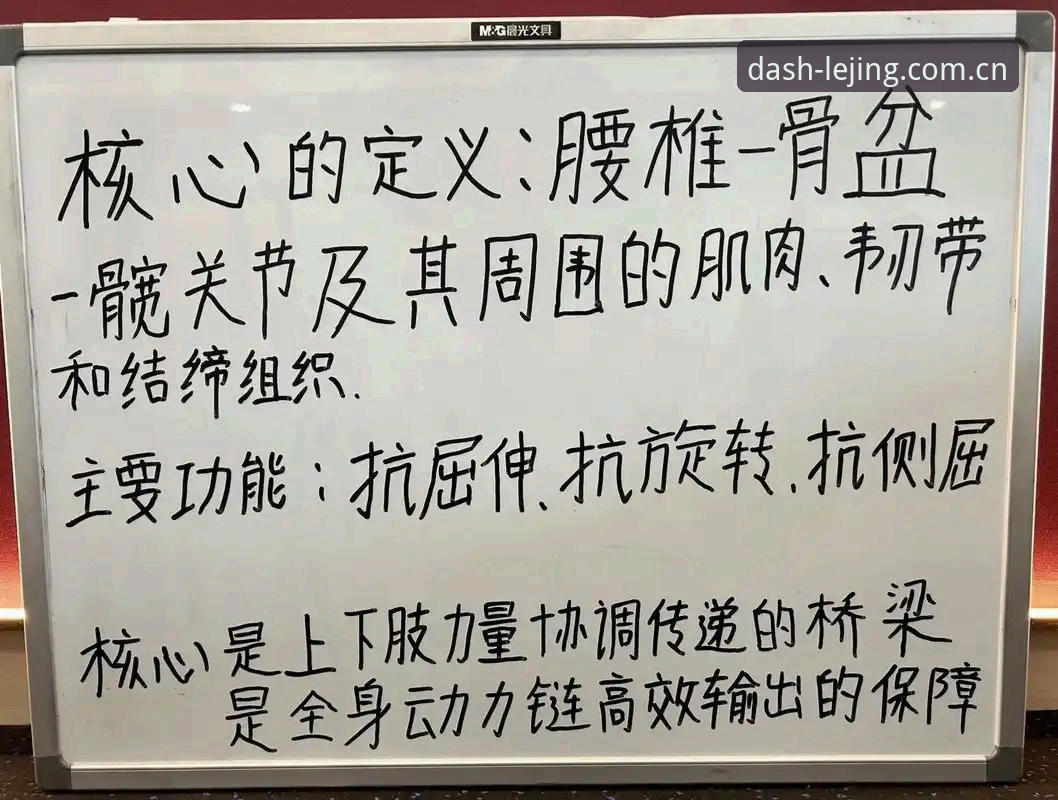 M&G晨光文具
dash-lejing.com.cn
核心的定义：腰椎－骨盆
－髋关节及其周围的肌肉、韧带
和结缔组织.
主要功能：抗屈伸、抗旋转、抗侧屈
核心是上下肢力量协调传递的桥梁
是全身动力链高效输出的保障